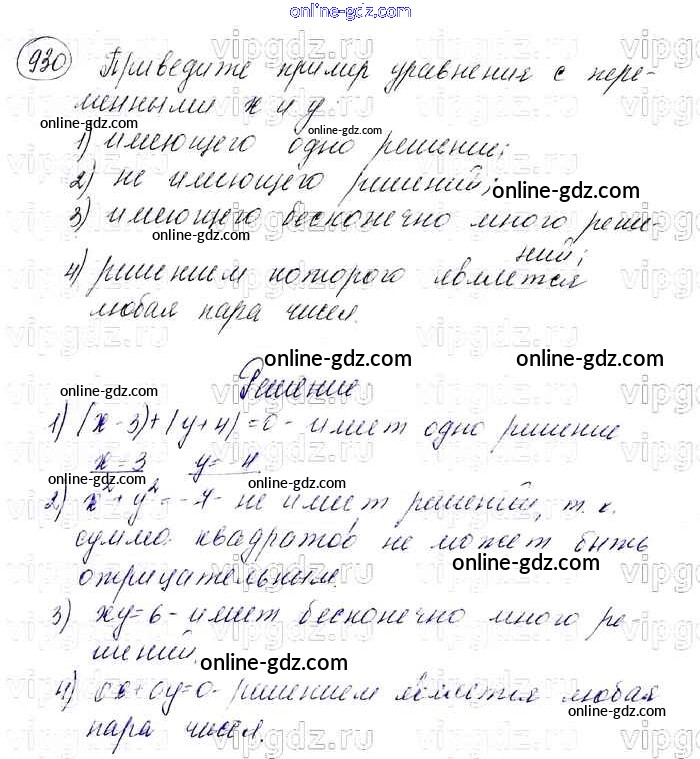 online-gdz.com
930 Приведите пример уравнения с пере-
менными x и y:
online-gdz.com
online-gdz.com
1) имеющего одно решение;
2) не имеющего решений;
online-gdz.com
3) имеющего бесконечно много реше-
ний;
online-gdz.com
4) решением которого является
любая пара чисел.
vipgdz.ru
online-gdz.com
online-gdz.com
Решение
online-gdz.com
1) |x-3|+|y+4|=0- имеет одно решение
x=3 y=-4
online-gdz.com
online-gdz.com
2) x²+y²=-7- не имеет решений, т.к.
сумма квадратов не может быть
отрицательным.
online-gdz.com
3) xy=6- имеет бесконечно много ре-
шений.
online-gdz.com
4) 0x+0y=0- решением является любая
пара чисел.
online-gdz.com
online-gdz.com